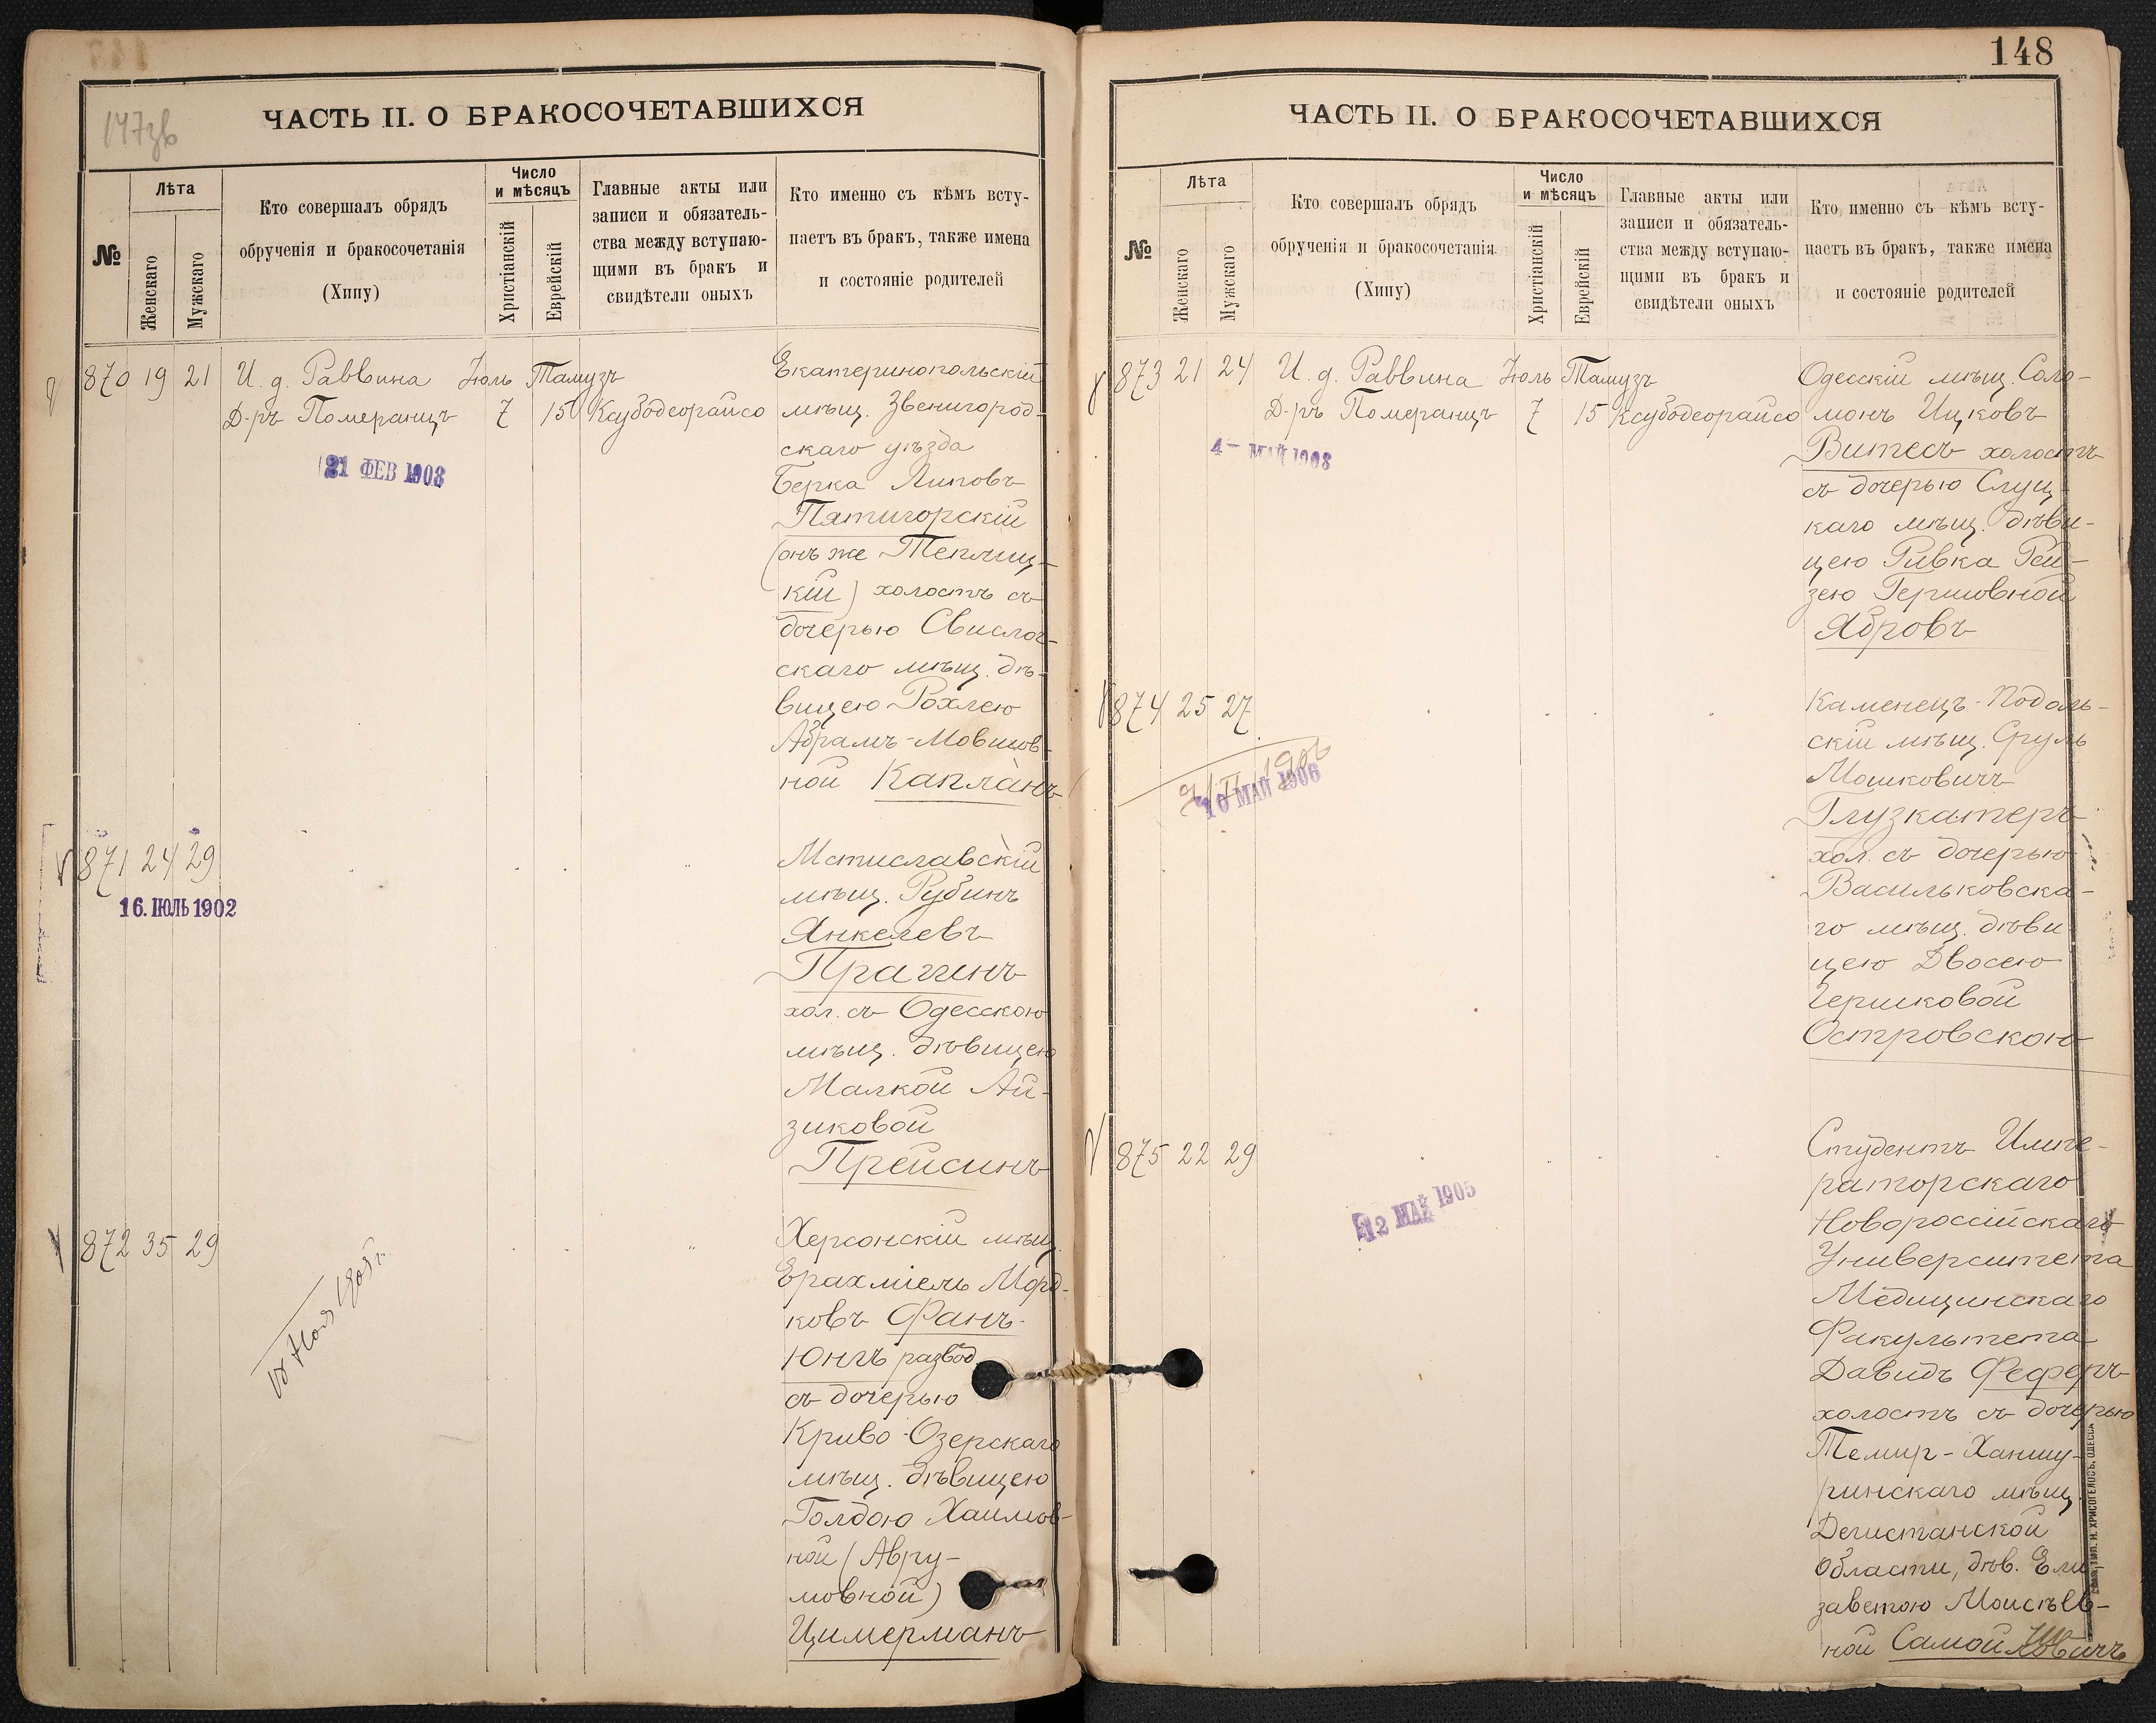 147зв
ЧАСТЬ II. О БРАКОСОЧЕТАВШИХСЯ
№
Лѣта
Женскаго
Мужскаго
Кто совершалъ обрядъ
обрученія и бракосочетанія
(Хипу)
Число
и мѣсяцъ
Христіанскій
Еврейскій
Главные акты или
записи и обязатель-
ства между вступаю-
щими въ бракъ и
свидѣтели оныхъ
Кто именно съ кѣмъ всту-
паетъ въ бракъ, также имена
и состояніе родителей
870 19 21 И. д. Раввина Іюль Тамузъ
Д-ръ Померанцъ 7 15 Ксубодеорайсо
21 ФЕВ 1908
Екатеринопольскій
мѣщ. Звенигород-
скаго уѣзда
Берка Липовъ
Пятигорскій
(онъ же Теплиц-
кій) холостъ съ
дочерью Свислоч-
скаго мѣщ. дѣ-
вицею Рохлею
Абрамъ-Мовшов-
ной Капланъ
871 24 29
16. ІЮЛЬ 1902
Мстиславскій
мѣщ. Рубинъ
Янкелевъ
Прагинъ
хол. съ Одесскою
мѣщ. дѣвицею
Малкой Ай-
зиковой
Прейсинъ
872 35 29
Херсонскій мѣщ.
Ерахміель Морд-
ковъ Фанъ-
Юнгъ развод.
съ дочерью
Криво-Озерскаго
мѣщ. дѣвицею
Голдою Хаимов-
ной (Авру-
мовной)
Цимерманъ
148
ЧАСТЬ II. О БРАКОСОЧЕТАВШИХСЯ
№
Лѣта
Женскаго
Мужскаго
Кто совершалъ обрядъ
обрученія и бракосочетанія
(Хипу)
Число
и мѣсяцъ
Христіанскій
Еврейскій
Главные акты или
записи и обязатель-
ства между вступаю-
щими въ бракъ и
свидѣтели оныхъ
Кто именно съ кѣмъ всту-
паетъ въ бракъ, также имена
и состояніе родителей
873 21 24 И. д. Раввина Іюль Тамузъ
Д-ръ Померанцъ 7 15 Ксубодеорайсо
4- МАЙ 1908
Одесскій мѣщ. Соло-
монъ Ицковъ
Витесъ холостъ
съ дочерью Слуц-
каго мѣщ. дѣви-
цею Ривка Рей-
зею Гершовной
Ябровъ
874 25 27
10 МАЙ 1906
Каменецъ-Подоль-
скій мѣщ. Сруль
Мошковичъ
Глузкатеръ
хол. съ дочерью
Васильковска-
го мѣщ. дѣви
цею Двосею
Гершковой
Островскою
875 22 29
12 МАЙ 1905
Студентъ Импе-
раторскаго
Новороссійскаго
Университета
Медицинскаго
Факультета
Давидъ Феферъ
холостъ съ дочерью
Темир-Ханшу-
ринскаго мѣщ.
Дегистанской
области, дѣв. Ели
заветою Моисѣев-
ной Самойловичъ
ТИП. Н. ХРИСОГЕЛОСЪ. ОДЕССА